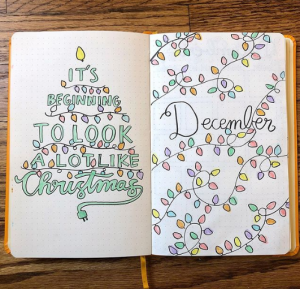 IT'S
BEGINNING
TO LOOK
A LOT LIKE
Christmas
December